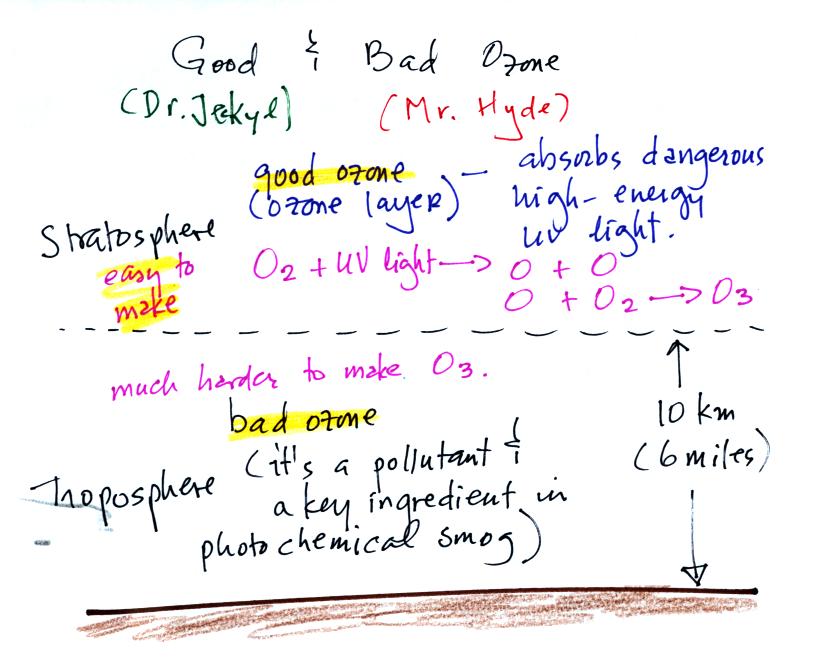 Good & Bad Ozone
(Dr. Jekyl) (Mr. Hyde)
good ozone – absorbs dangerous
(ozone layer) high-energy
Stratosphere uv light.
easy to O2 + UV light → O + O
make O + O2 → O3
much harder to make O3.
bad ozone 10 km
(it's a pollutant & (6 miles)
Troposphere a key ingredient in
photochemical smog)